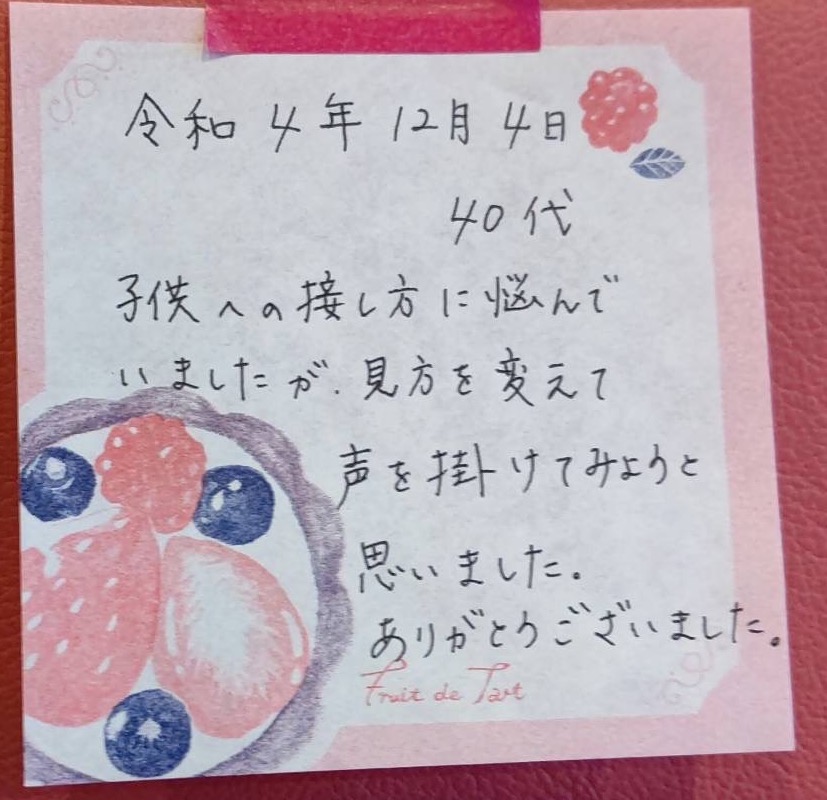 令和4年12月4日
40代
子供への接し方に悩んで
いましたが、見方を変えて
声を掛けてみようと
思いました。
ありがとうございました。
Fruit de Tart